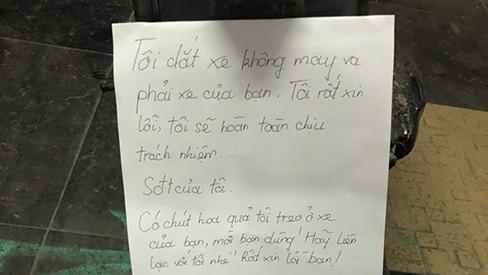 Tôi dắt xe không may va
phải xe của bạn. Tôi rất xin
lỗi, tôi sẽ hoàn toàn chịu
trách nhiệm.
Sđt của tôi.
Có chút hoa quả tôi treo ở xe
của bạn, mời bạn dùng! Hãy liên
lạc với tôi nhé! Rất xin lỗi bạn!